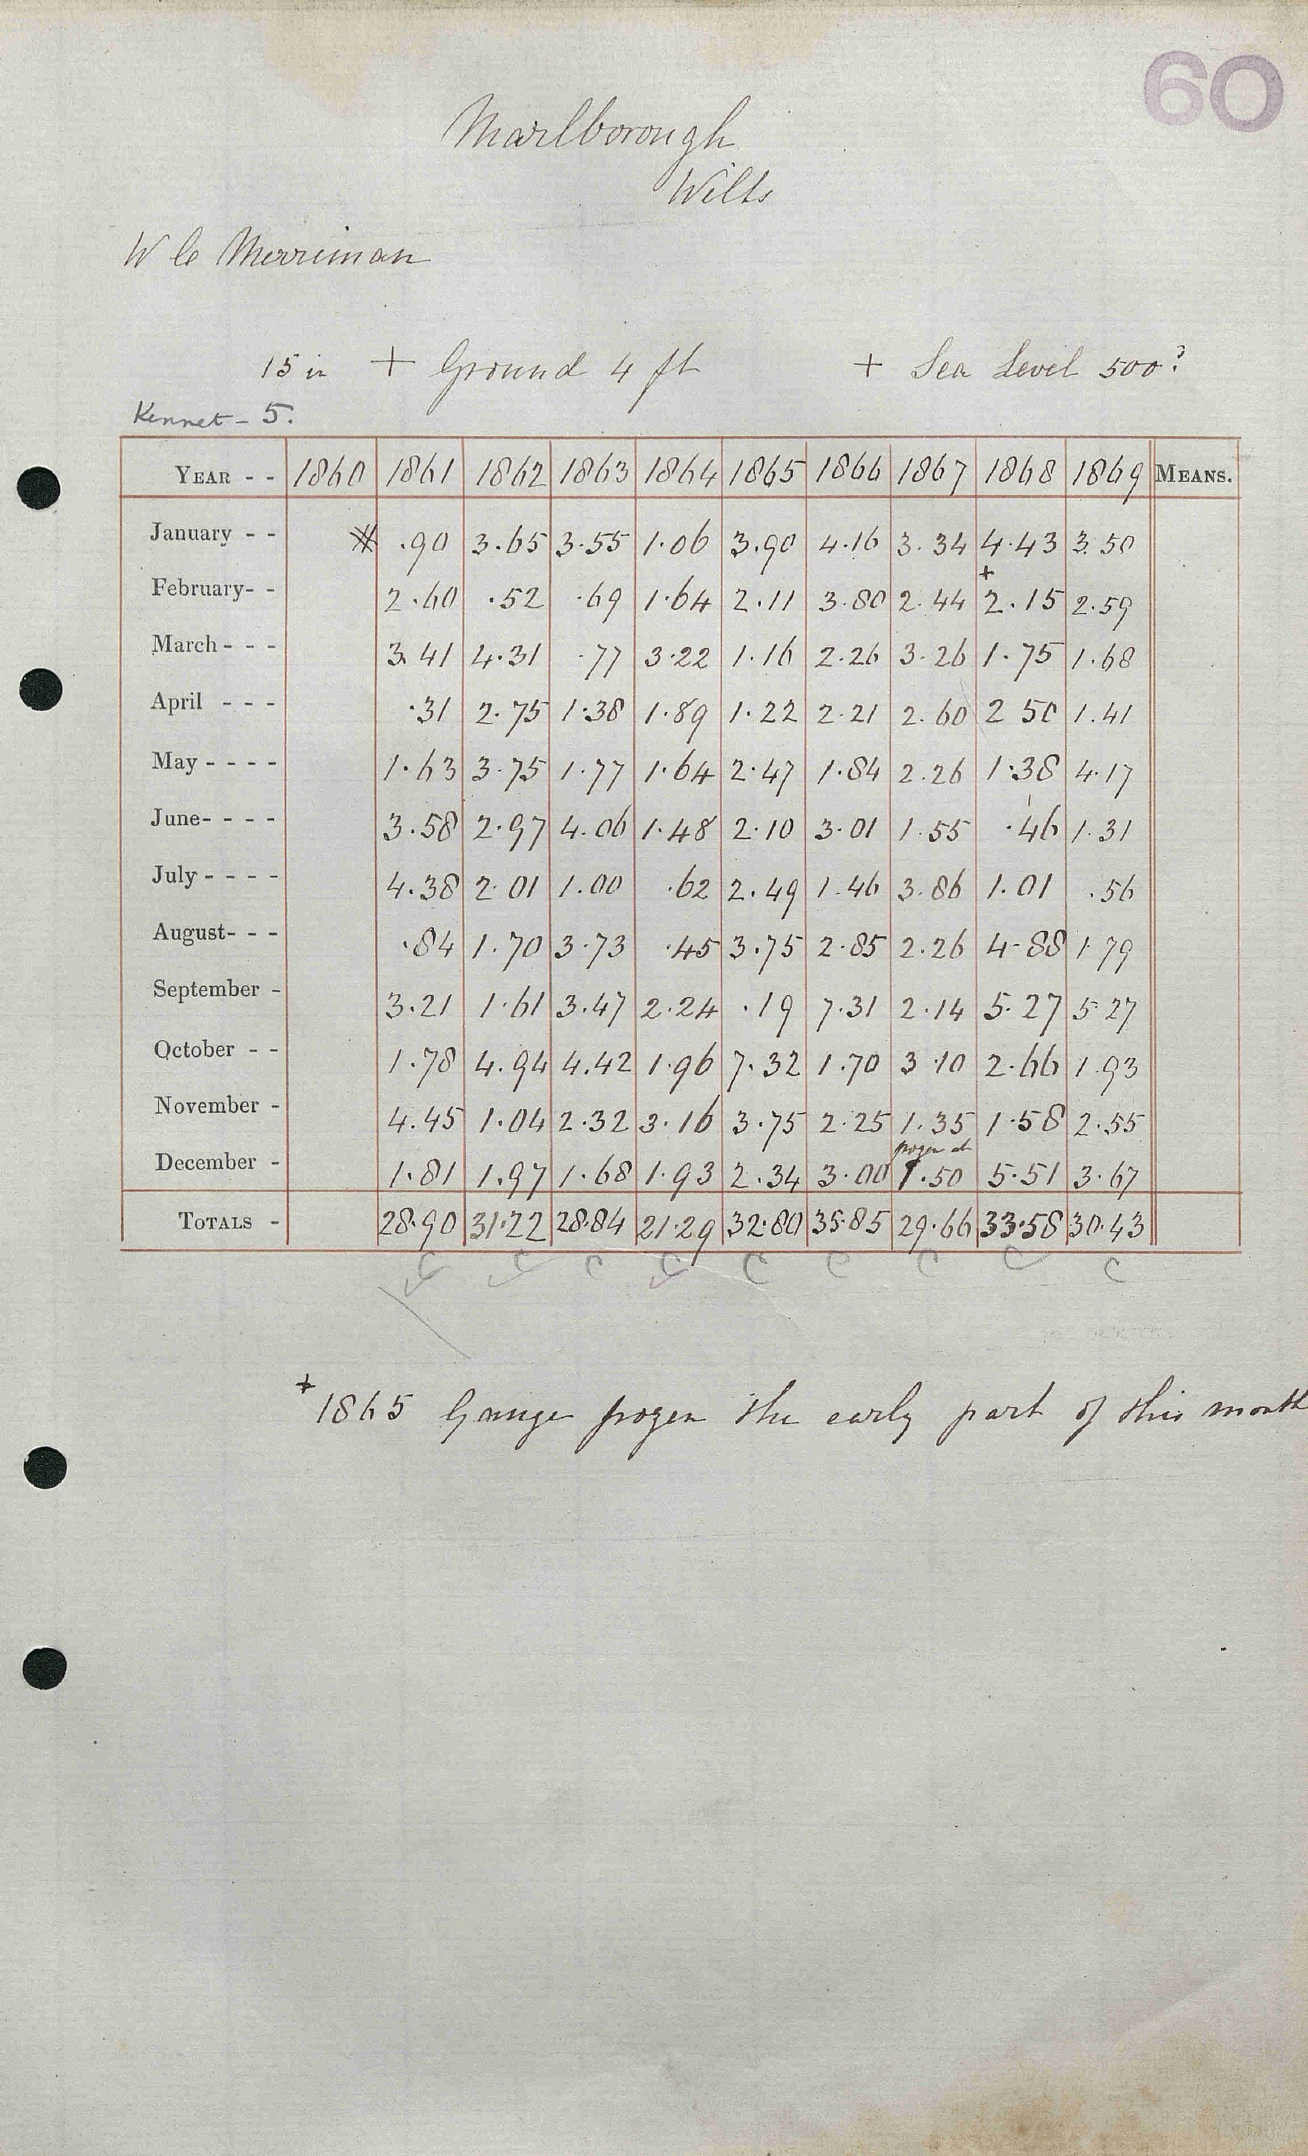 60
Marlborough
Wilts
W C Merriman
15 in + Ground 4 ft + Sea Level 500?
Kennet - 5.
YEAR - - 1860 1861 1862 1863 1864 1865 1866 1867 1868 1869 MEANS.
January - - .90 3.65 3.55 1.06 3.90 4.16 3.34 4.43 3.50
February- - 2.60 .52 .69 1.64 2.11 3.80 2.44 + 2.15 2.59
March - - - 3.41 4.31 .77 3.22 1.16 2.26 3.26 1.75 1.68
April - - - .31 2.75 1.38 1.89 1.22 2.21 2.60 2 50 1.41
May - - - - 1.63 3.75 1.77 1.64 2.47 1.84 2.26 1.38 4.17
June- - - - 3.58 2.97 4.06 1.48 2.10 3.01 1.55 .46 1.31
July - - - - 4.38 2.01 1.00 .62 2.49 1.46 3.86 1.01 .56
August- - - .84 1.70 3.73 .45 3.75 2.85 2.26 4.88 1.79
September - 3.21 1.61 3.47 2.24 .19 7.31 2.14 5.27 5.27
October - - 1.78 4.94 4.42 1.96 7.32 1.70 3.10 2.66 1.93
November - 4.45 1.04 2.32 3.16 3.75 2.25 1.35 1.58 2.55
frozen at
December - 1.81 1.97 1.68 1.93 2.34 3.00 1.50 5.51 3.67
TOTALS - 28.90 31.22 28.84 21.29 32.80 35.85 29.66 33.58 30.43
C C C C C C C C C
+ 1865 Gauge frozen the early part of this month